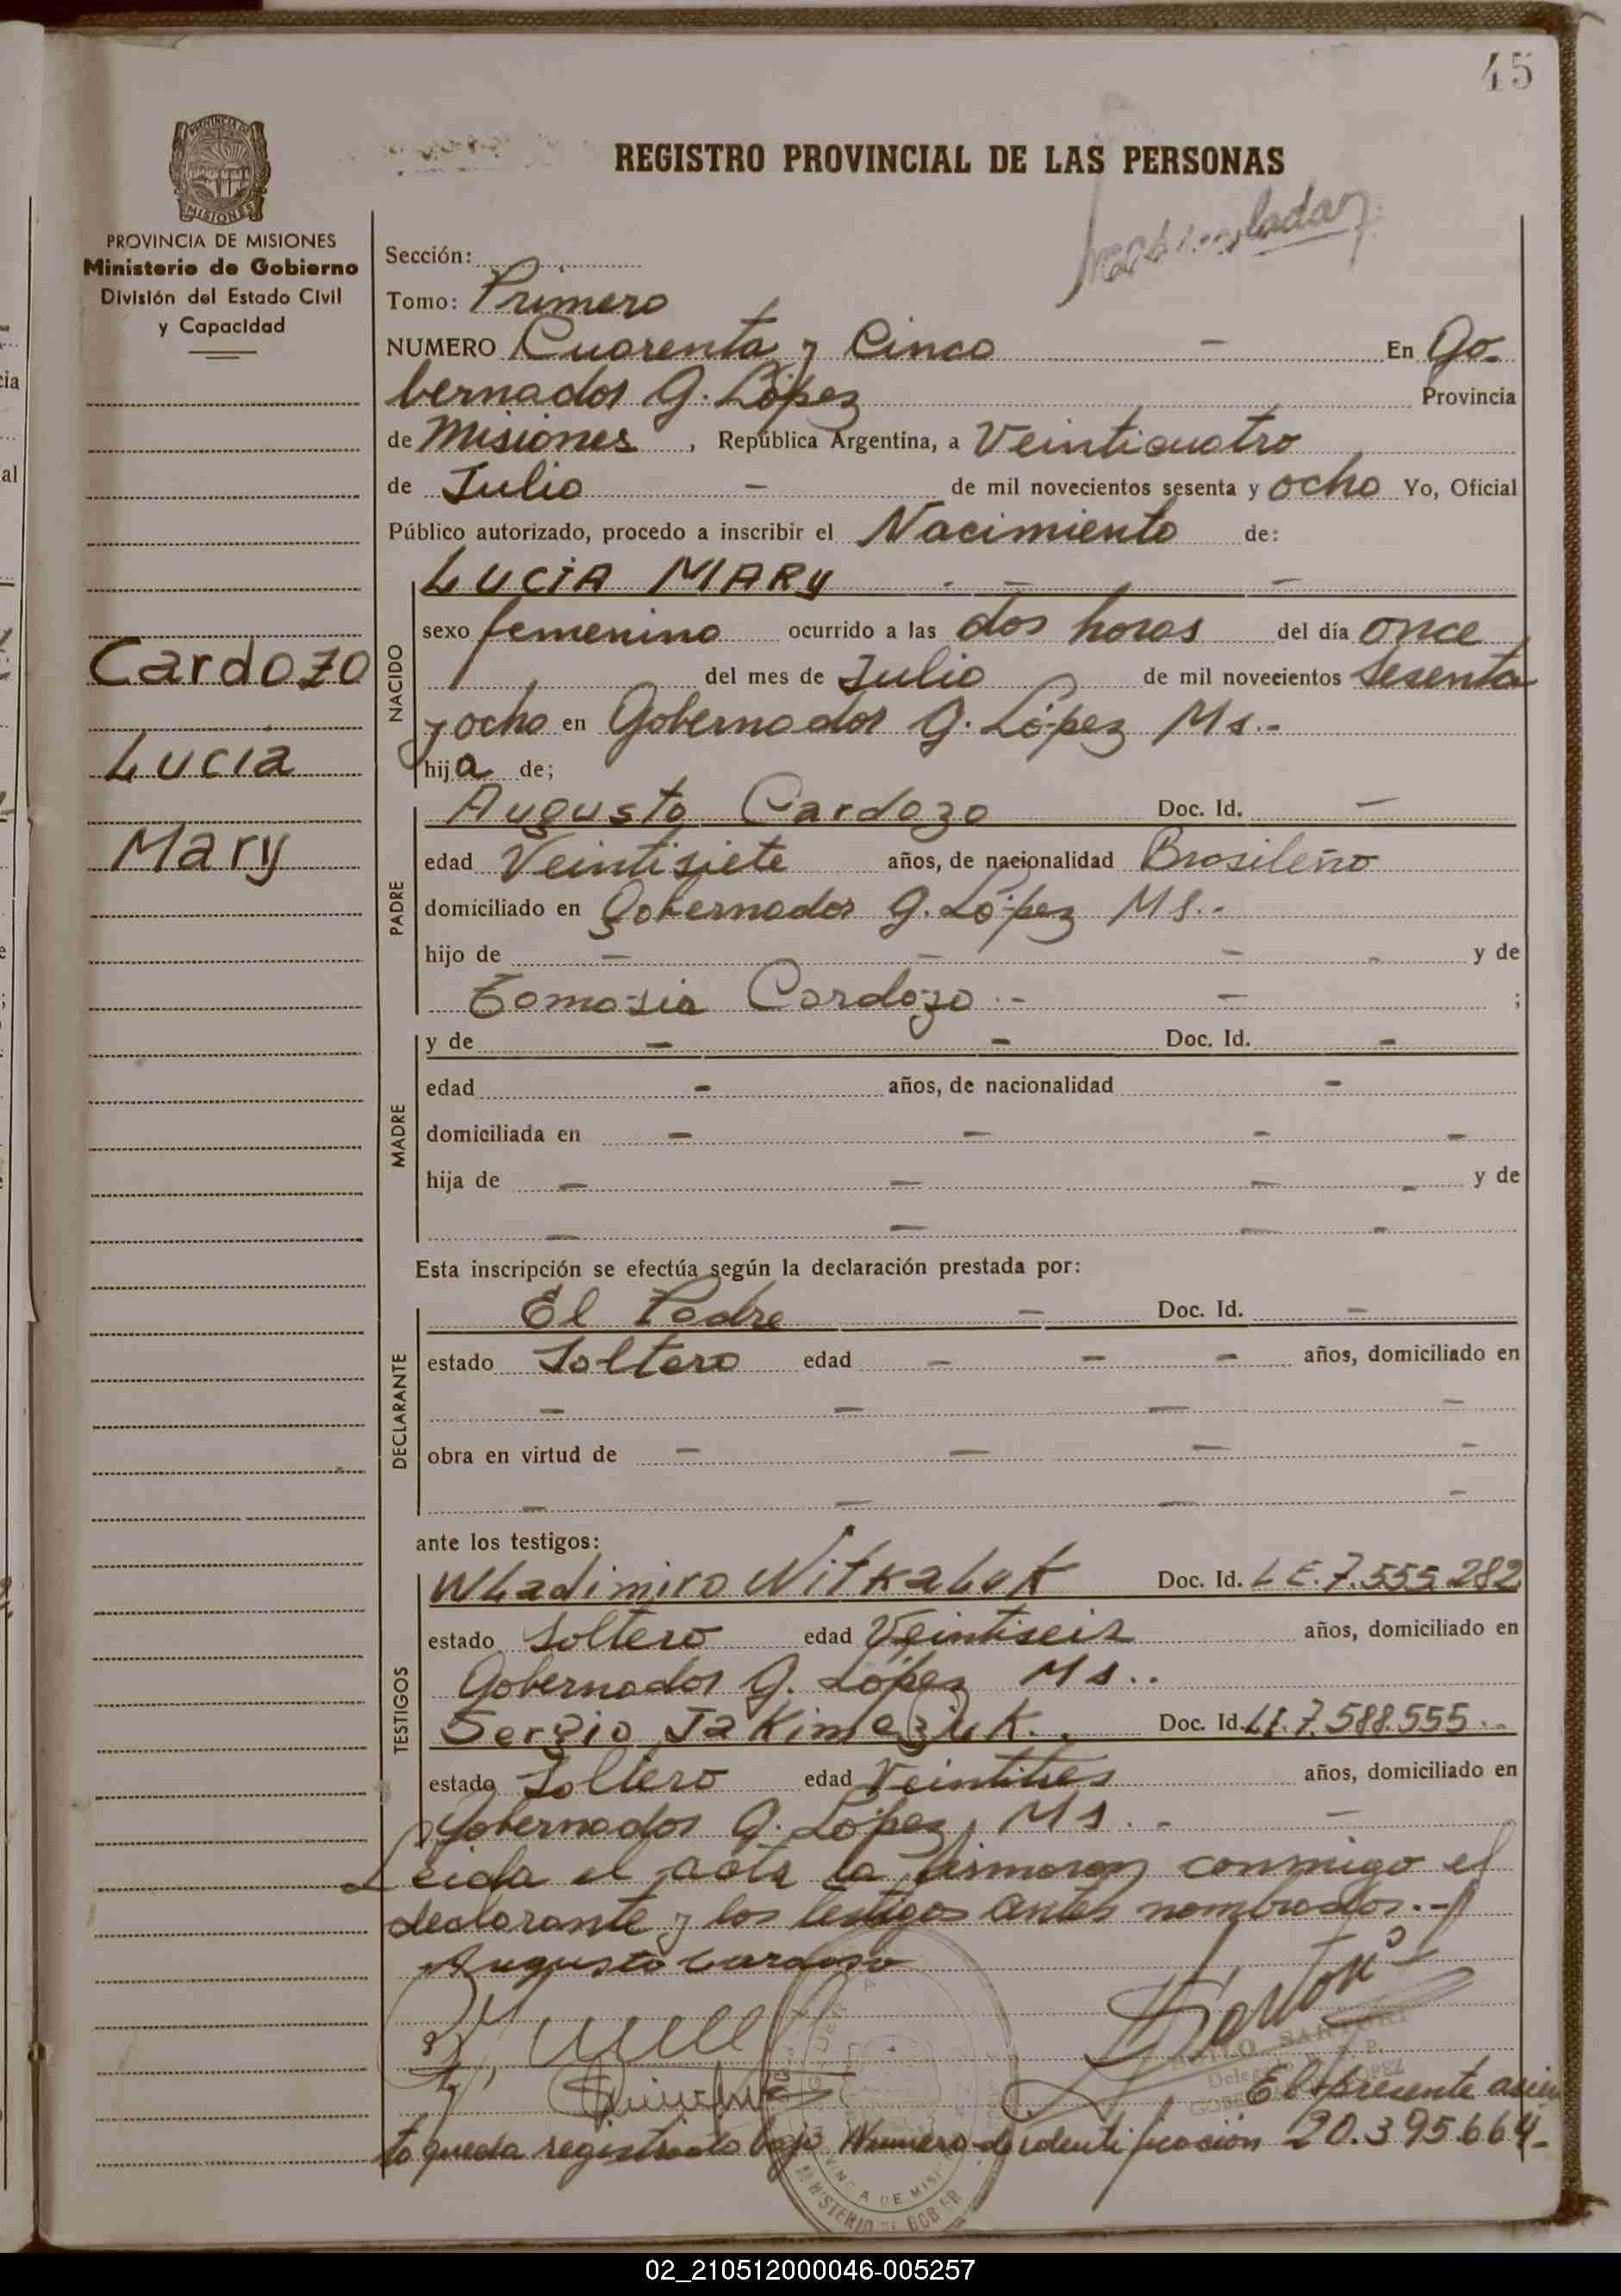 45
REGISTRO PROVINCIAL DE LAS PERSONAS
PROVINCIA DE
MISIONES
PROVINCIA DE MISIONES
Ministerio de Gobierno
División del Estado Civil
y Capacidad
Sección:
Tomo: Primero
NUMERO Cuarenta y Cinco - En Go-
bernador G. López Provincia
de Misiones, República Argentina, a Veinticuatro
de Julio - de mil novecientos sesenta y ocho Yo, Oficial
Público autorizado, procedo a inscribir el Nacimiento de:
LUCIA MARY - - -
Cardozo
Lucia
Mary
NACIDO
sexo femenino ocurrido a las dos horas del día once
del mes de Julio de mil novecientos sesenta
y ocho en Gobernador G. López Ms.-
hija de;
PADRE
Augusto Cardozo Doc. Id. -
edad Veintisiete años, de nacionalidad Brasileño
domiciliado en Gobernador G. López Ms.-
hijo de - - - - y de
Tomasia Cardozo.- - ;
MADRE
y de - - Doc. Id. -
edad - años, de nacionalidad -
domiciliada en - - - -
hija de - - - - y de
- - - -
Esta inscripción se efectúa según la declaración prestada por:
DECLARANTE
El Padre - Doc. Id. -
estado Soltero edad - - - años, domiciliado en
- - - -
obra en virtud de - - - -
- - - -
ante los testigos:
TESTIGOS
Wladimiro Nitkaluk Doc. Id. L E. 7.555.282
estado Soltero edad Veintiseis años, domiciliado en
Gobernador G. López Ms..
Sergio Jakimezuk. Doc. Id. L E. 7.588.555.-
estado Soltero edad Veintitres años, domiciliado en
Gobernador G. López, Ms.. - -
Leida el acta la firmaron conmigo el
declarante y los testigos antes nombrados.-
Augusto Cardoso
SARTORI
El presente asien
to queda registrado bajo Numero de identificación 20.395.664-
02_210512000046-005257